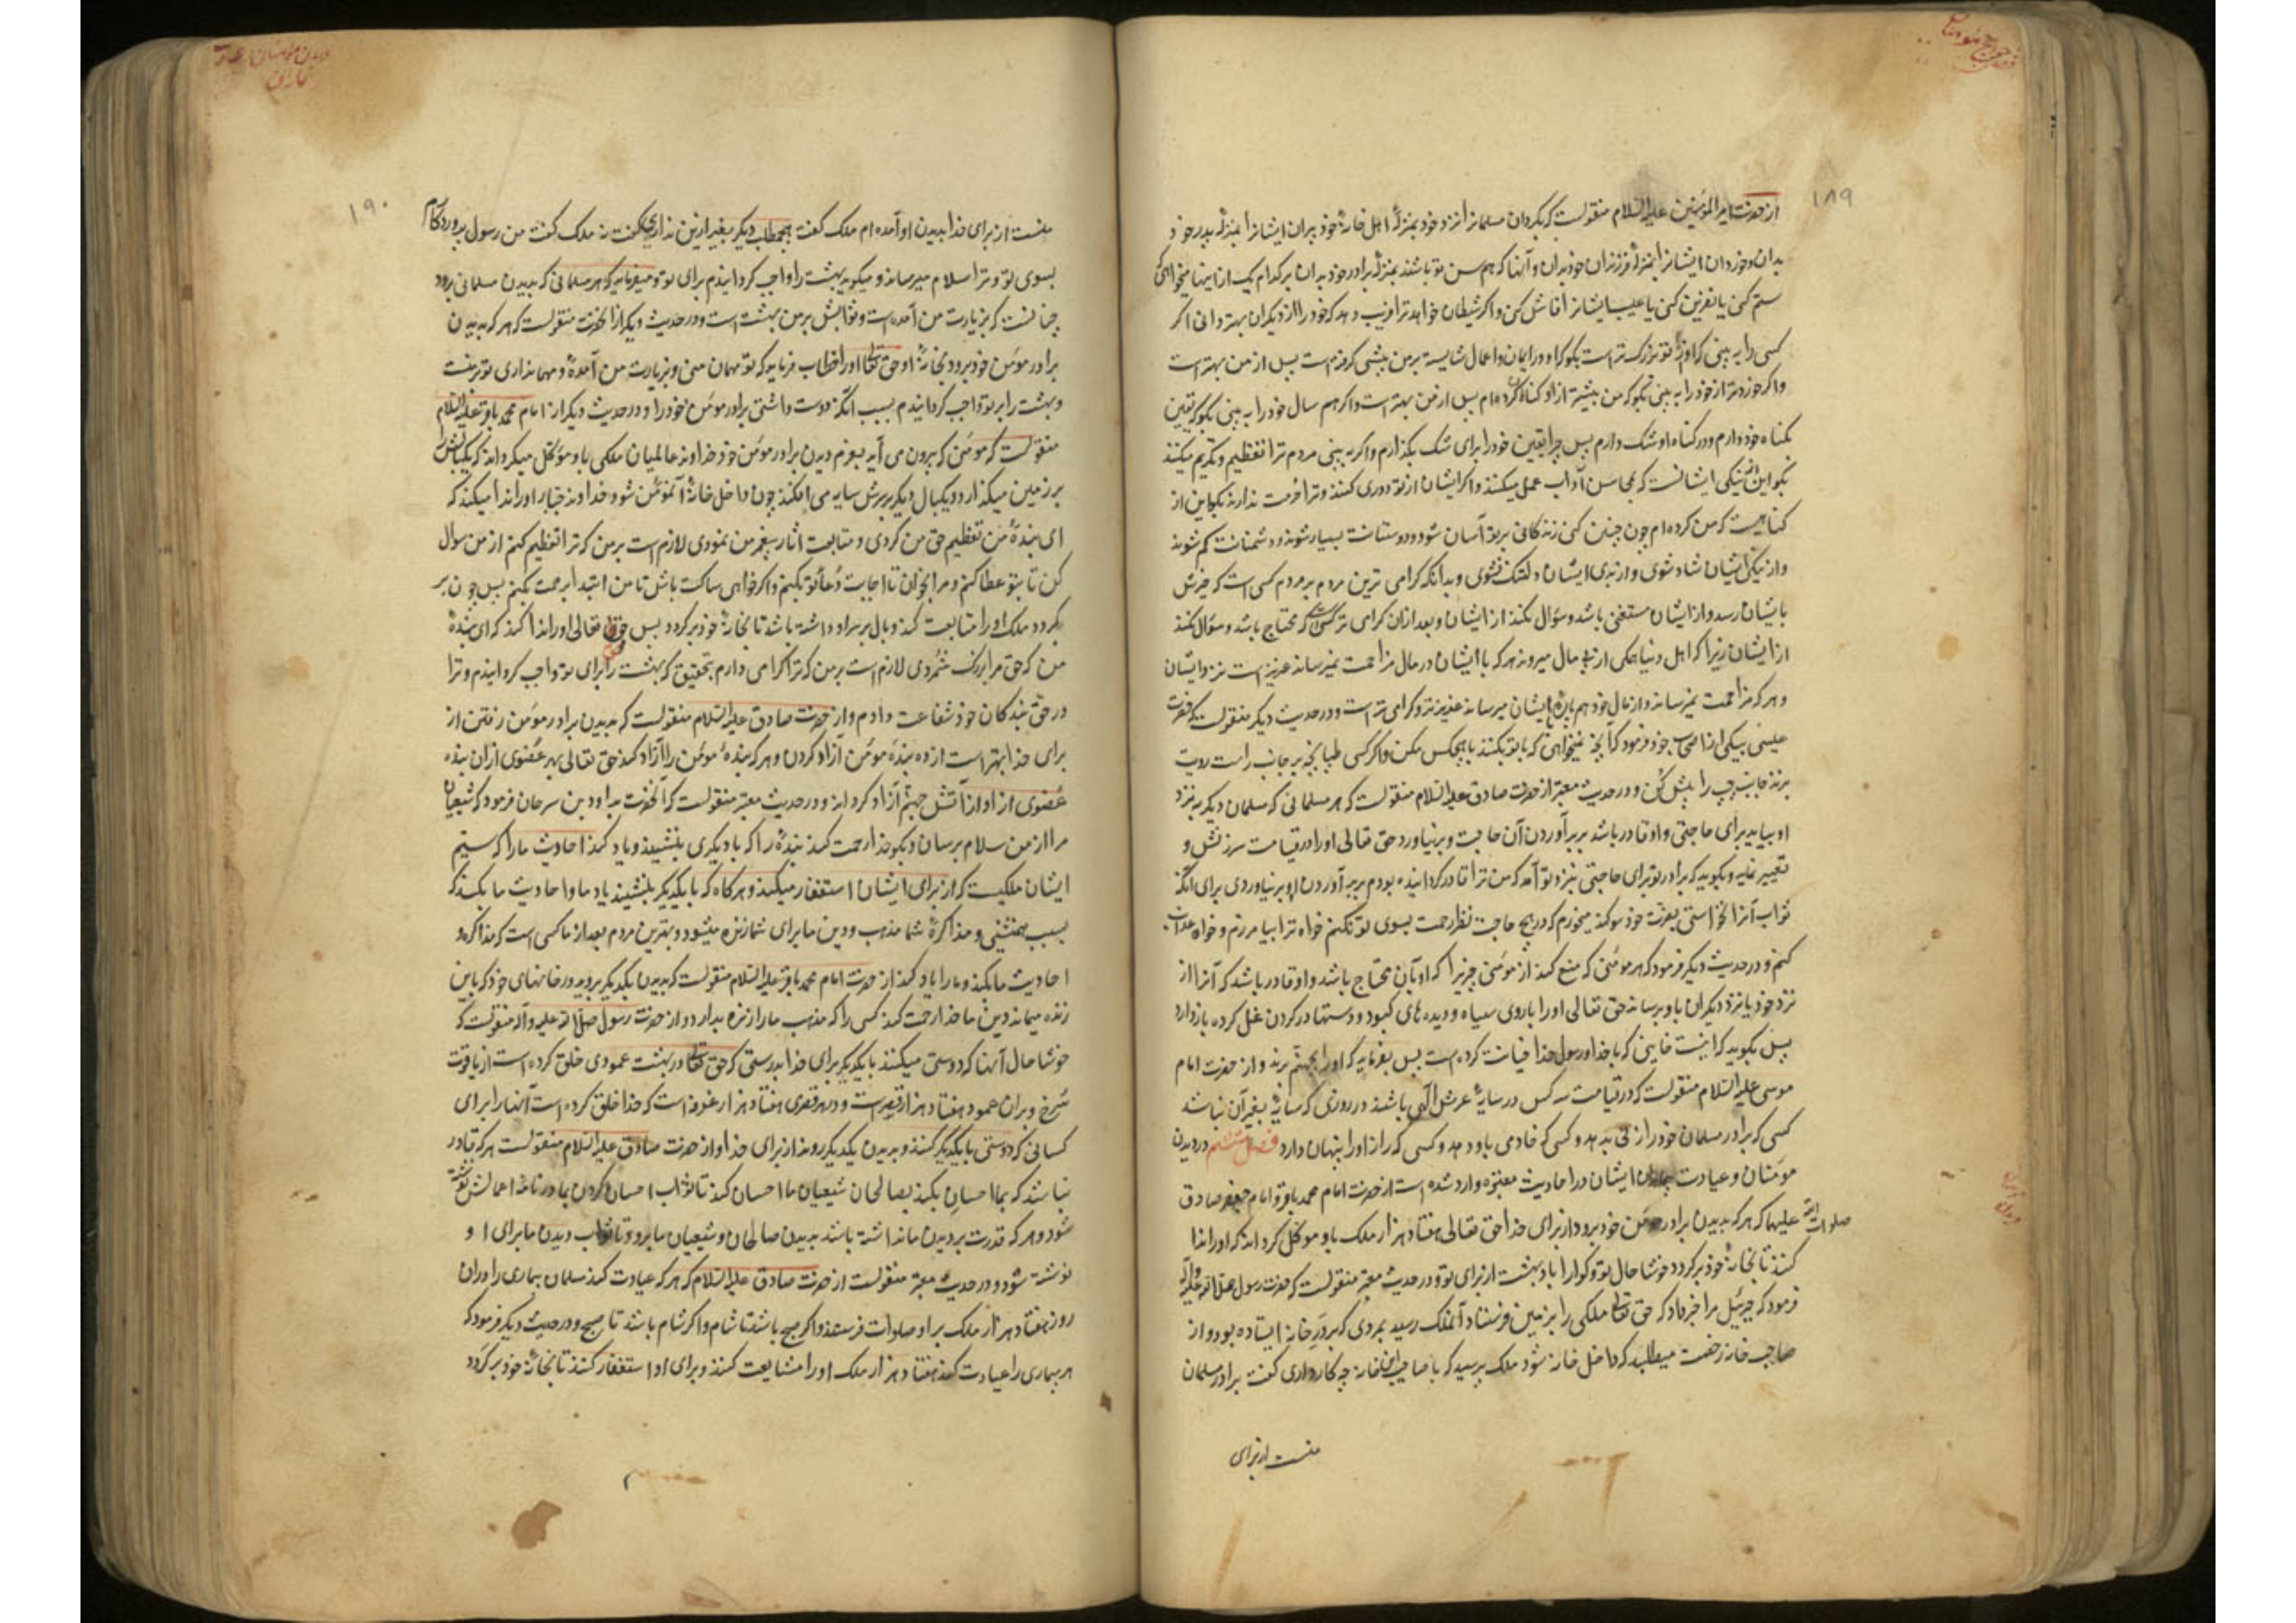 ۱۸۹
از حضرت امیرالمؤمنین علیه السلام منقولست که بگردان مسلمانرا نزد خود بمنزلهٔ اهل خانهٔ خود پیران ایشانرا بمنزلهٔ پدر خود
بدان و خوردان ایشانرا بمنزلهٔ فرزندان خود بدان و آنها که هم سن تو باشند بمنزلهٔ برادر خود بدان بر کدام یک از اینها میخواهی که
ستم کنی یا نفرین کنی یا عیبهای ایشانرا فاش کنی و اگر شیطان خواهد ترا فریب دهد که خود را از دیگران بهتر دانی اگر
کسی را به بینی که او از تو بزرگ تر است بگو که او در ایمان و اعمال شایسته بر من پیشی گرفته است پس از من بهتر است
و اگر خوردتر از خود را به بینی بگو که من بیشتر از او گناه کرده ام پس از من بهتر است و اگر هم سال خود را به بینی بگو که یقین
بگناه خود دارم و در گناه او شک دارم پس چرا یقین خود را برای شک بگذارم و اگر به بینی مردم ترا تعظیم و تکریم میکنند
بگو این از نیکی ایشانست که بمحاسن آداب عمل میکنند و اگر ایشان از تو دوری کنند و ترا حرمت ندارند بگو این از
گناهیست که من کرده ام چون چنین کنی زندگانی بر تو آسان شود و دوستانت بسیار شوند و دشمنانت کم شوند
و از نیکی ایشان شاد شوی و از بدی ایشان دلتنگ نشوی و بدانکه گرامی ترین مردم بر مردم کسی است که خیرش
بایشان رسد و از ایشان مستغنی باشد و سؤال نکند از ایشان و بعد ازان گرامی تر کسیست که محتاج باشد و سؤال نکند
از ایشان زیرا که اهل دنیا همگی از پی مال میروند هر که با ایشان در مال مزاحمت نمیرساند عزیز است نزد ایشان
و هر که مزاحمت نمیرساند و از مال خود هم پارهٔ بایشان میرساند عزیزتر و گرامی تر است و در حدیث دیگر منقولست که حضرت
عیسی بیکی از اصحاب خود فرمود که آنچه نمیخواهی که با تو بکنند با هیچکس مکن و اگر کسی طپانچه بر جانب راست رویت
بزند جانب چپ را پیش کن و در حدیث معتبر از حضرت صادق علیه السلام منقولست که هر مسلمانی که مسلمان دیگر به نزد
او بیاید برای حاجتی و او قادر باشد بر برآوردن آن حاجت و بر نیاورد حق تعالی او را در قیامت سرزنش و
تعییر نماید و بگوید که برادر تو برای حاجتی بنزد تو آمد که من ترا قادر گردانیده بودم بر برآوردن او بر نیاوردی برای آنکه
ثواب آنرا نخواستی بعزت خود سوگند میخورم که در هیچ حاجت نظر رحمت بسوی تو نکنم خواه ترا بیامرزم و خواه عذاب
کنم و در حدیث دیگر فرمود که هر مؤمنی که منع کند از مؤمنی چیزیرا که او بآن محتاج باشد و او قادر باشد که آنرا از
نزد خود یا نزد دیگران باو برساند حق تعالی او را با روی سیاه و دیده های کبود و دستها در گردن غل کرده باز دارد
پس بگوید که اینست خاینی که با خدا و رسول خدا خیانت کرده است پس بفرماید که او را بجهنم برند و از حضرت امام
موسی علیه السلام منقولست که در قیامت سه کس در سایهٔ عرش الهی باشند در روزی که سایهٔ بغیر آن نباشد
کسی که برادر مسلمان خود را زنی بدهد و کسی که خادمی باو دهد و کسی که راز او را پنهان دارد فصل ششم در دیدن
مؤمنان و عیادت بیماران ایشان در احادیث معتبره وارد شده است از حضرت امام محمد باقر و امام جعفر صادق
صلوات الله علیهما که هر که بدیدن برادر مؤمن خود برود از برای خدا حق تعالی هفتاد هزار ملک باو موکل گرداند که او را ندا
کنند تا بخانهٔ خود برگردد خوشا حال تو و گوارا باد بهشت از برای تو و در حدیث معتبر منقولست که حضرت رسول صلی الله علیه وآله
فرمود که جبرئیل مرا خبر داد که حق تعالی ملکی را بزمین فرستاد آنملک رسید بمردی که بر در خانه ایستاده بود و از
صاحب خانه رخصت میطلبید که داخل خانه شود ملک پرسید که با صاحب اینخانه چه کار داری گفت برادر مسلمان
منست از برای
۱۹۰
منست از برای خدا بدیدن او آمده ام ملک گفت هیچ مطلب دیگر بغیر ازین نداری گفت نه ملک گفت من رسول پروردگارم
بسوی تو و ترا سلام میرساند و میگوید بهشت را واجب گردانیدم برای تو و میفرماید که هر مسلمانی که بدیدن مسلمانی برود
چنانست که بزیارت من آمده است و ثوابش بر من بهشت است و در حدیث دیگر از آنحضرت منقولست که هر که بدیدن
برادر مؤمن خود برود بخانهٔ او حق تعالی او را خطاب فرماید که تو مهمان منی و بزیارت من آمدهٔ و مهمانداری تو بر منست
و بهشت را بر تو واجب گردانیدم بسبب آنکه دوست داشتی برادر مؤمن خود را و در حدیث دیگر از امام محمد باقر علیه السلام
منقولست که مؤمنی که بیرون می آید بعزم دیدن برادر مؤمن خود خداوند عالمیان ملکی باو موکل میگرداند که یکبالش را
بر زمین میگذارد و یکبال دیگر بر سرش سایه می افکند چون داخل خانهٔ آنمؤمن شود خداوند جبار او را ندا میکند که
ای بندهٔ من تعظیم حق من کردی و متابعت آثار پیغمبر من نمودی لازم است بر من که ترا تعظیم کنم از من سؤال
کن تا بتو عطا کنم و مرا بخوان تا اجابت دعای تو بکنم و اگر خواهی ساکت باش تا من ابتدا برحمت بکنم پس چون بر
گردد ملک او را متابعت کند و بال بر سر او داشته باشد تا بخانهٔ خود برگردد پس حق تعالی او را ندا کند که ای بندهٔ
من که حق مرا بزرگ شمردی لازم است بر من که ترا گرامی دارم بتحقیق که بهشت را برای تو واجب گردانیدم و ترا
در حق بندگان خود شفاعت دادم و از حضرت صادق علیه السلام منقولست که بدیدن برادر مؤمن رفتن از
برای خدا بهتر است از ده بندهٔ مؤمن آزاد کردن و هر که بندهٔ مؤمن را آزاد کند حق تعالی بهر عضوی ازان بنده
عضوی از او از آتش جهنم آزاد گرداند و در حدیث معتبر منقولست که آنحضرت بداود بن سرحان فرمود که شیعیان
مرا از من سلام برسان و بگو خدا رحمت کند بندهٔ را که با دیگری بنشیند و یاد کند احادیث ما را که سیم
ایشان ملکیست که از برای ایشان استغفار میکند و هرگاه که با یکدیگر بنشینید یاد ما و احادیث ما بکنید که
بسبب همنشینی و مذاکرهٔ شما مذهب و دین ما برای شما زنده میشود و بهترین مردم بعد از ما کسی است که مذاکره
احادیث ما بکند و ما را یاد کند از حضرت امام محمد باقر علیه السلام منقولست که بدیدن یکدیگر بروید در خانهای خود که باین
زنده میماند دین ما خدا رحمت کند کسی را که مذهب ما را زنده بدارد و از حضرت رسول صلی الله علیه وآله منقولست که
خوشا حال آنها که دوستی میکنند با یکدیگر برای خدا بدرستی که حق تعالی در بهشت عمودی خلق کرده است از یاقوت
سرخ و بران عمود هفتاد هزار قصر است و در هر قصری هفتاد هزار غرفه است که خدا خلق کرده است آنها را برای
کسانی که دوستی با یکدیگر کنند و بدیدن یکدیگر روند از برای خدا و از حضرت صادق علیه السلام منقولست هر که قادر
نباشد که بما احسان بکند بصالحان شیعیان ما احسان کند تا ثواب احسان کردن بما در نامهٔ اعمالش نوشته
شود و هر که قدرت بر دیدن ما نداشته باشد بدیدن صالحان و شیعیان ما برود تا ثواب دیدن ما برای او
نوشته شود و در حدیث معتبر منقولست از حضرت صادق علیه السلام که هر که عیادت کند مسلمان بیماری را در ان
روز هفتاد هزار ملک بر او صلوات فرستند و اگر صبح باشد تا شام و اگر شام باشد تا صبح و در حدیث دیگر فرمود که
هر بیماری را عیادت کند هفتاد هزار ملک او را مشایعت کنند و برای او استغفار کنند تا بخانهٔ خود برگردد